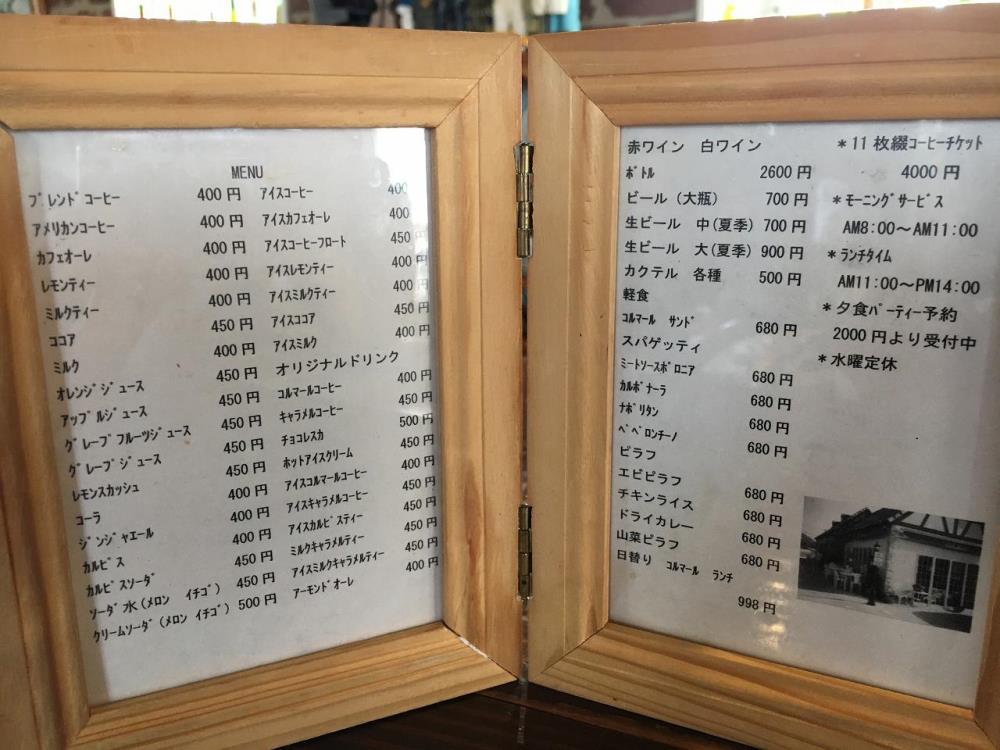 MENU
ブレンドコーヒー 400円 アイスコーヒー 400
アメリカンコーヒー 400円 アイスカフェオーレ 400
カフェオーレ 400円 アイスコーヒーフロート 450円
レモンティー 400円 アイスレモンティー 400円
ミルクティー 400円 アイスミルクティー 400円
ココア 450円 アイスココア 450円
ミルク 400円 アイスミルク 400円
オレンジジュース 450円 オリジナルドリンク
アップルジュース 450円 コルマールコーヒー 400円
グレープフルーツジュース 450円 キャラメルコーヒー 400円
グレープジュース 450円 チョコレスカ 500円
レモンスカッシュ 450円 ホットアイスクリーム 400円
コーラ 400円 アイスコルマールコーヒー 450円
ジンジャエール 400円 アイスキャラメルコーヒー 450円
カルピス 400円 アイスカルピスティー 450円
カルピスソーダ 450円 ミルクキャラメルティー 450円
ソーダ水(メロン イチゴ) 450円 アイスミルクキャラメルティー 450円
クリームソーダ(メロン イチゴ) 500円 アーモンドオーレ 400円
赤ワイン 白ワイン
ボトル 2600円
ビール(大瓶) 700円
生ビール 中(夏季) 700円
生ビール 大(夏季) 900円
カクテル 各種 500円
軽食
コルマール サンド 680円
スパゲッティ
ミートソースボロニア 680円
カルボナーラ 680円
ナポリタン 680円
ペペロンチーノ 680円
ピラフ
エビピラフ 680円
チキンライス 680円
ドライカレー 680円
山菜ピラフ 680円
日替り コルマール ランチ
998円
*11枚綴コーヒーチケット
4000円
*モーニングサービス
AM8:00～AM11:00
*ランチタイム
AM11:00～PM14:00
*夕食パーティー予約
2000円より受付中
*水曜定休